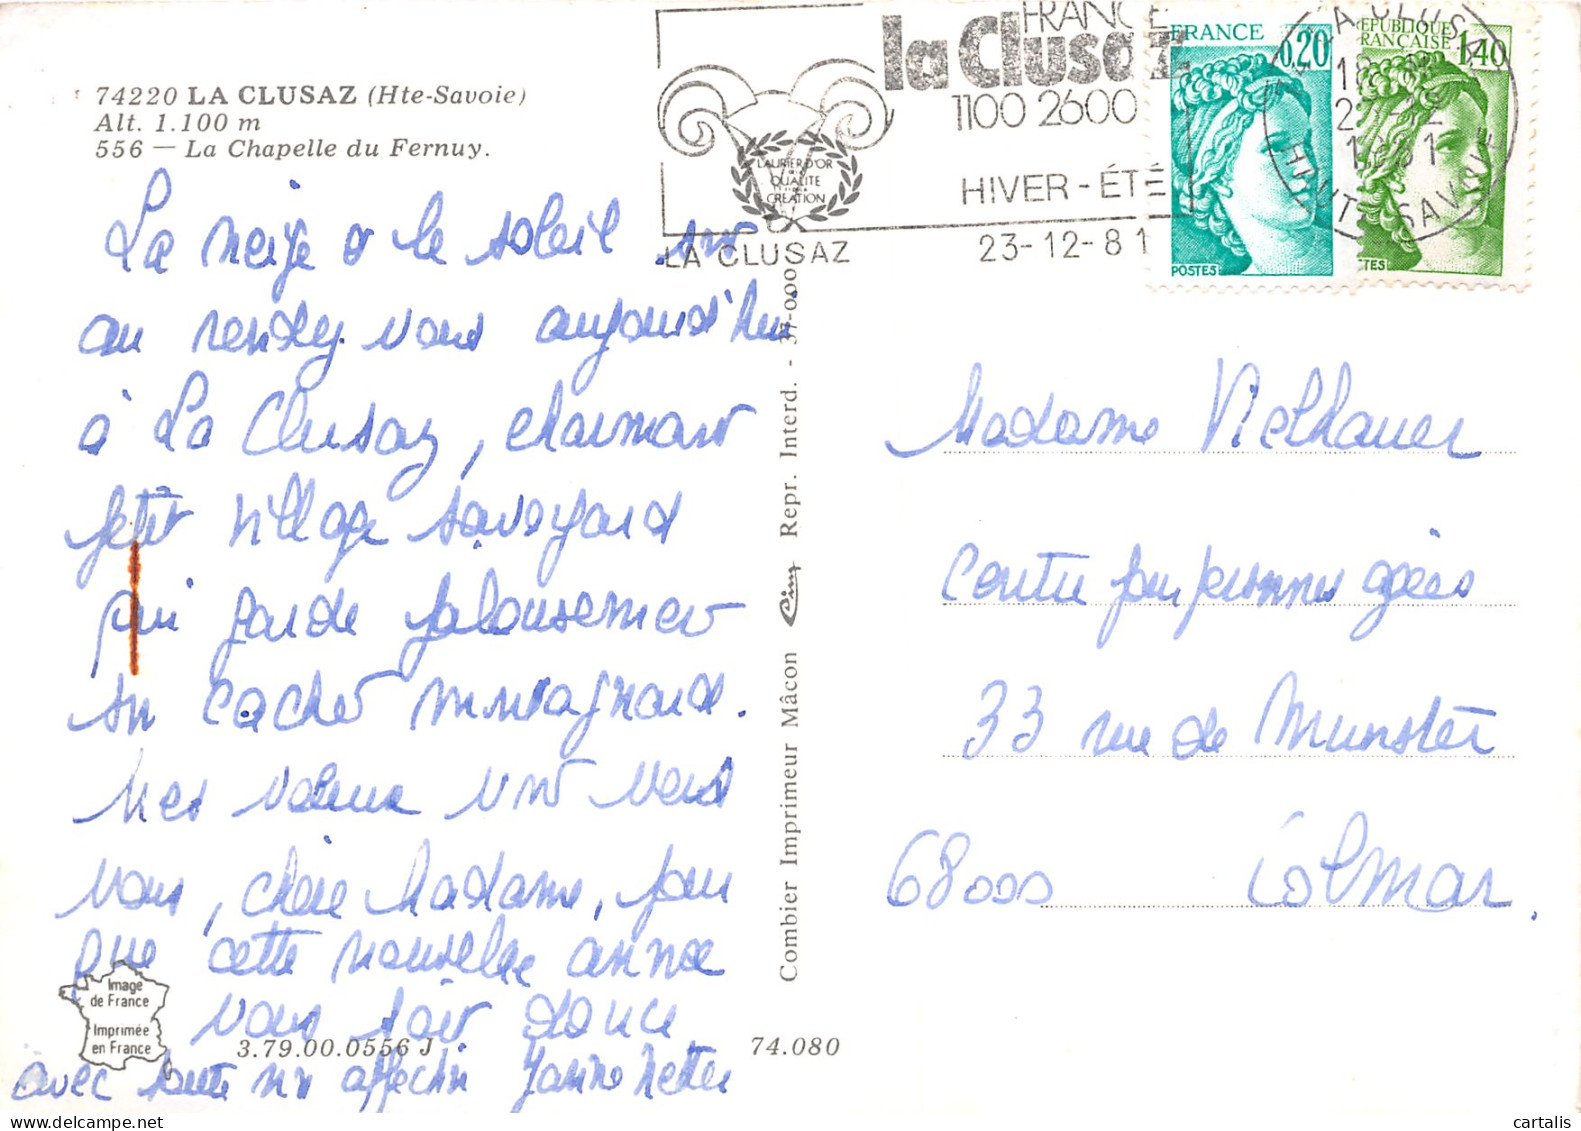 74220 LA CLUSAZ (Hte-Savoie)
Alt. 1.100 m
556 — La Chapelle du Fernuy.
FRANCE
la Clusaz
1100 2600
LAURIER D'OR
QUALITE
CREATION
HIVER - ÉTÉ
LA CLUSAZ
23-12-81
FRANCE
0,20
POSTES
REPUBLIQUE
FRANCAISE
1,40
LA CLUSAZ
HAUTE SAVOIE
La neige & le soleil sont
au rendez-vous aujourd'hui
à La Clusaz, charmant
petit village savoyard
qui garde jalousement
son cachet montagnard.
Mes vœux vont vers
vous, chère Madame, pour
que cette nouvelle année
vous soit douce
avec toute mon affection
Combier Imprimeur Mâcon Cim Repr. Interd. - 37-000
Madame Vielhauer
Centre pour personnes âgées
33 rue de Munster
68000 Colmar.
Image
de France
Imprimée
en France
3.79.00.0556 J
74.080
cartalis
www.delcampe.net